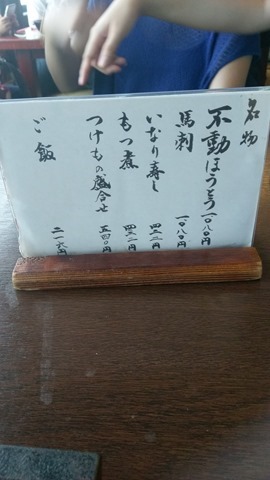 名物
不動ほうとう 一〇八〇円
馬刺 一〇八〇円
いなり寿し 四三二円
もつ煮 四三二円
つけもの盛合せ 五四〇円
ご飯 二一六円